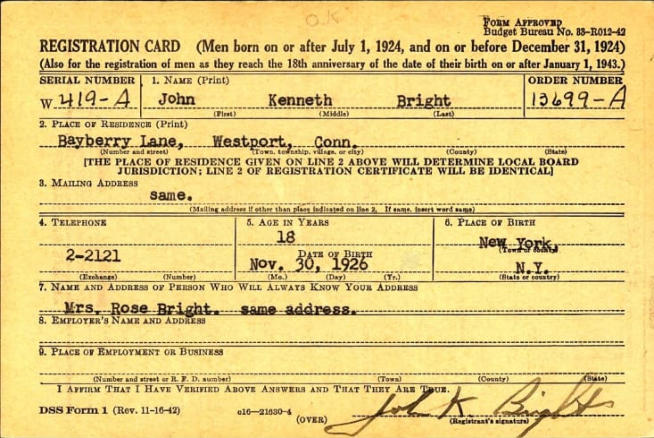 O.K
FORM APPROVED
Budget Bureau No. 33-R012-42
REGISTRATION CARD (Men born on or after July 1, 1924, and on or before December 31, 1924)
(Also for the registration of men as they reach the 18th anniversary of the date of their birth on or after January 1, 1943.)
SERIAL NUMBER 1. NAME (Print) ORDER NUMBER
W. 419-A John Kenneth Bright 13699-A
(First) (Middle) (Last)
2. PLACE OF RESIDENCE (Print)
Bayberry Lane, Westport, Conn.
(Number and street) (Town, township, village, or city) (County) (State)
[THE PLACE OF RESIDENCE GIVEN ON LINE 2 ABOVE WILL DETERMINE LOCAL BOARD
JURISDICTION; LINE 2 OF REGISTRATION CERTIFICATE WILL BE IDENTICAL]
3. MAILING ADDRESS
same.
(Mailing address if other than place indicated on line 2. If same, insert word same)
4. TELEPHONE 5. AGE IN YEARS 6. PLACE OF BIRTH
18
New York,
(Town or county)
DATE OF BIRTH
2-2121 Nov. 30, 1926 N.Y.
(Exchange) (Number) (Mo.) (Day) (Yr.) (State or country)
7. NAME AND ADDRESS OF PERSON WHO WILL ALWAYS KNOW YOUR ADDRESS
Mrs. Rose Bright. same address.
8. EMPLOYER'S NAME AND ADDRESS
9. PLACE OF EMPLOYMENT OR BUSINESS
(Number and street or R. F. D. number) (Town) (County) (State)
I AFFIRM THAT I HAVE VERIFIED ABOVE ANSWERS AND THAT THEY ARE TRUE.
DSS Form 1 (Rev. 11-16-42) c16-21630-4 John K. Bright
(OVER) (Registrant's signature)